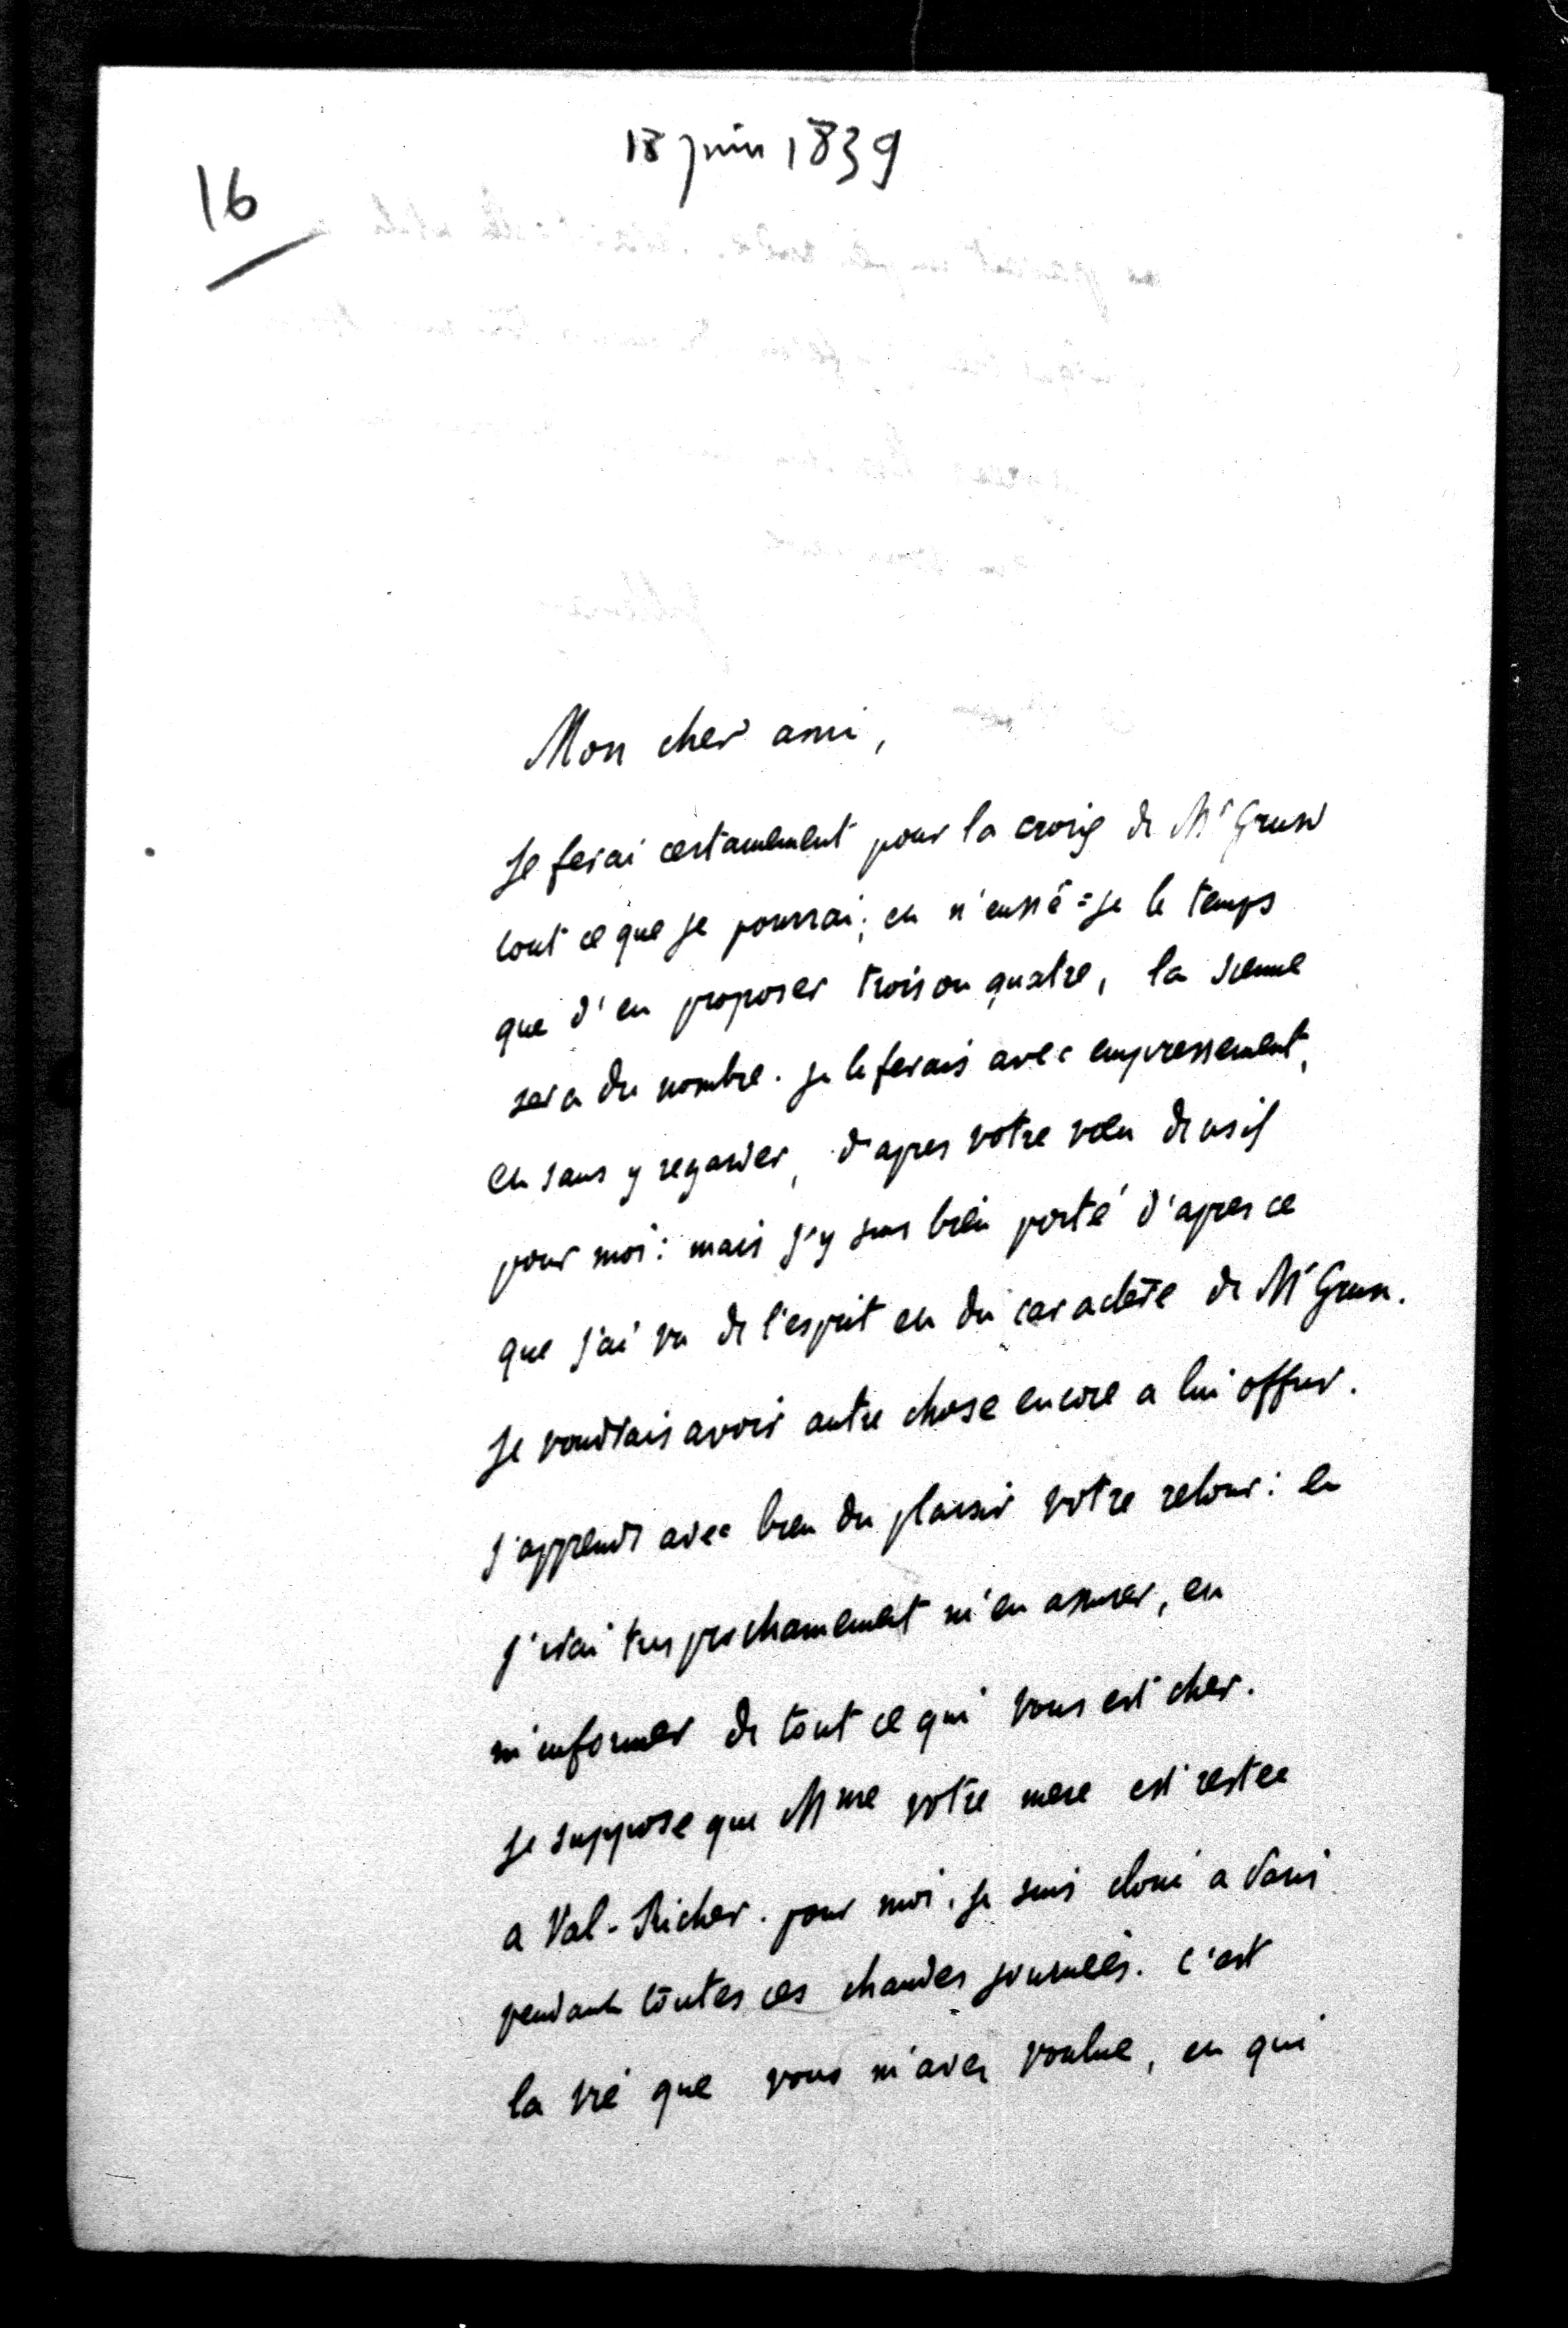 18 juin 1839
16
Mon cher ami,
Je ferai certainement pour la croix de Mr Grun
tout ce que je pourrai; et n'eussé-je le temps
que d'en proposer trois ou quatre, la sienne
sera du nombre. je le ferais avec empressement,
et sans y regarder, d'apres votre voeu decisif
pour moi: mais j'y suis bien porté d'apres ce
que j'ai vu de l'esprit et du caractère de Mr Grun.
Je voudrais avoir autre chose encore a lui offrir.
J'apprends avec bien du plaisir votre retour: et
j'irai tres prochainement m'en assurer, et
m'informer de tout ce qui vous est cher.
je suppose que Mme votre mere est restee
a Val-Richer. pour moi, je suis cloué a Paris
pendant toutes ces chaudes journées. c'est
la vie que vous m'avez voulue, et qui